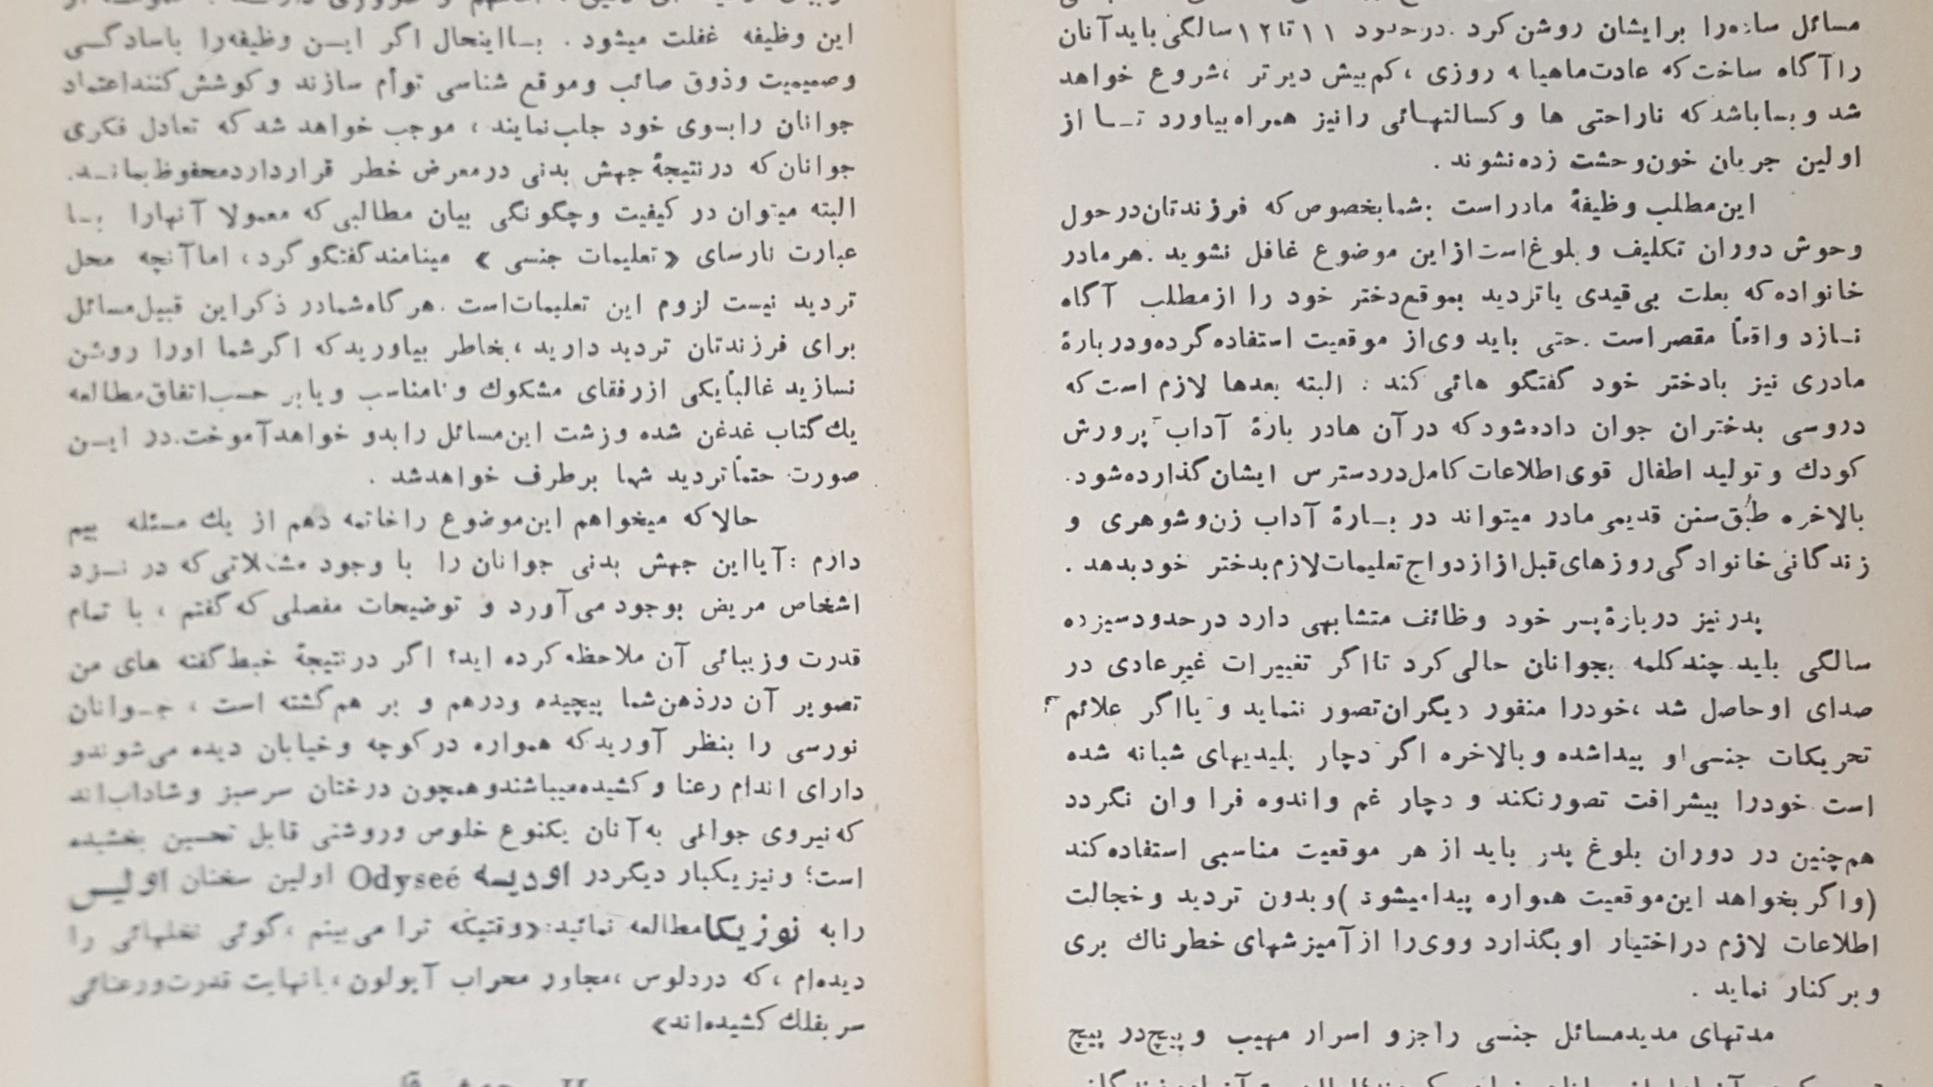 مسائل سازه‌را برایشان روشن کرد . درحدود ۱۱ تا ۱۲ سالگی باید آنان
را آگاه ساخت که عادت ماهیانه روزی ، کم بیش دیرتر ، شروع خواهد
شد و بساباشد که ناراحتی ها و کسالتهائی را نیز همراه بیاورد تــا از
اولین جریان خون وحشت زده نشوند .
این مطلب وظیفهٔ مادراست ؛ شما بخصوص که فرزندتان درحول
وحوش دوران تکلیف و بلوغ است از این موضوع غافل نشوید . هرمادر
خانواده که بعلت بی قیدی یا تردید بموقع دختر خود را از مطلب آگاه
نـازد واقعاً مقصر است . حتی باید وی از موقعیت استفاده کرده و دربارهٔ
مادری نیز بادختر خود گفتگو هائی کند . البته بعدها لازم است که
دروسی بدختران جوان داده شود که در آن ها در بارهٔ آداب پرورش
کودك و تولید اطفال قوی اطلاعات کامل دردسترس ایشان گذارده شود.
بالاخره طبق سنن قدیمی مادر میتواند در بــارهٔ آداب زن و شوهری و
زندگانی خانوادگی روزهای قبل از ازدواج تعلیمات لازم بدختر خود بدهد .
پدر نیز دربارهٔ پسر خود وظائف متشابهی دارد درحدود سیزده
سالگی باید چند کلمه بجوانان حالی کرد تا اگر تغییرات غیرعادی در
صدای او حاصل شد ، خودرا منفور دیگران تصور ننماید و یا اگر علائم
تحریکات جنسی او پیدا شده و بالاخره اگر دچار پلیدیهای شبانه شده
است خودرا بیشرافت تصور نکند و دچار غم و اندوه فراوان نگردد
هم چنین در دوران بلوغ پدر باید از هر موقعیت مناسبی استفاده کند
(واگر بخواهد این موقعیت همواره پیدا میشود) و بدون تردید و خجالت
اطلاعات لازم در اختیار او بگذارد و وی را از آمیزشهای خطرناك بری
و برکنار نماید .
مدتهای مدید مسائل جنسی را جزو اسرار مهیب و پیچ در پیچ
این وظیفه غفلت میشود . بــا اینحال اگر ایــن وظیفه را باسادگــی
و صمیمیت و ذوق صائب و موقع شناسی توأم سازند و کوشش کنند اعتماد
جوانان را بسوی خود جلب نمایند ، موجب خواهد شد که تعادل فکری
جوانان که در نتیجهٔ جهش بدنی درمعرض خطر قرار دارد محفوظ بمانــد.
البته میتوان در کیفیت و چگونگی بیان مطالبی که معمولا آنها را بــا
عبارت نارسای «تعلیمات جنسی» مینامند گفتگو کرد ، اما آنچه محل
تردید نیست لزوم این تعلیمات است . هرگاه شما در ذکر این قبیل مسائل
برای فرزندتان تردید دارید ، بخاطر بیاورید که اگر شما او را روشن
نسازید غالباً یکی از رفقای مشکوك و نامناسب و یا بر حسب اتفاق مطالعه
یك کتاب غدغن شده و زشت این مسائل را بدو خواهد آموخت. در ایــن
صورت حتماً تردید شما برطرف خواهد شد .
حالا که میخواهم این موضوع را خاتمه دهم از یك مسئله بیم
دارم : آیا این جهش بدنی جوانان را با وجود مشکلاتی که در نــزد
اشخاص مریض بوجود می آورد و توضیحات مفصلی که گفتم ، با تمام
قدرت و زیبائی آن ملاحظه کرده اید؟ اگر در نتیجهٔ خبط گفته های من
تصویر آن درذهن شما پیچیده و درهم و بر هم گشته است ، جــوانان
نورسی را بنظر آورید که همواره در کوچه و خیابان دیده می شوند و
دارای اندام رعنا و کشیده میباشند و همچون درختان سرسبز و شاداب اند
که نیروی جوانی به آنان یکنوع خلوص و روشنی قابل تحسین بخشیده
است؛ و نیز یکبار دیگر در اودیسه Odyseé اولین سخنان اولیس
را به نوزیکا مطالعه نمائید: «وقتیکه ترا می بینم ، گوئی نخلهائی را
دیده ام ، که در دلوس ، مجاور محراب آپولون ، با نهایت قدرت و رعنائی
سر بفلك کشیده اند»